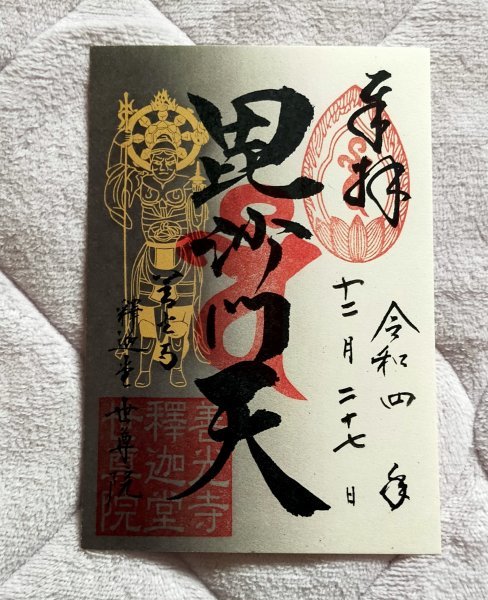 奉拝
令和四年
十二月二十七日
毘沙門天
善光寺
釋迦堂世尊院
善光寺
釋迦堂
世尊院